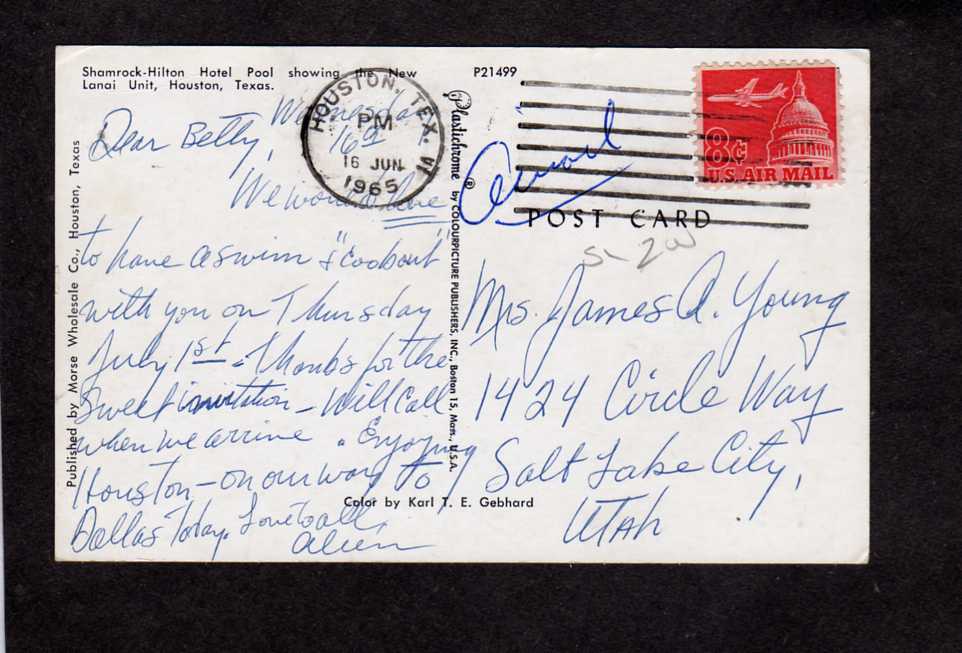 Shamrock-Hilton Hotel Pool showing the New
Lanai Unit, Houston, Texas.
P21499
HOUSTON, TEX.
PM
16 JUN
1965
8¢
U.S. AIR MAIL
Published by Morse Wholesale Co., Houston, Texas
Plastichrome ® by COLOURPICTURE PUBLISHERS, INC., Boston 15, Mass., U.S.A.
POST CARD
Wednesday
16th
Dear Betty,
We would love
to have a swim & "Cookout"
with you on Thursday
July 1st. Thanks for the
Sweet invitation - Will Call
when we arrive. Enjoying
Houston - on our way to
Dallas Today. Love to all,
Airmail
Mrs. James A. Young
1424 Circle Way
Salt Lake City,
UTAH
Color by Karl T. E. Gebhard